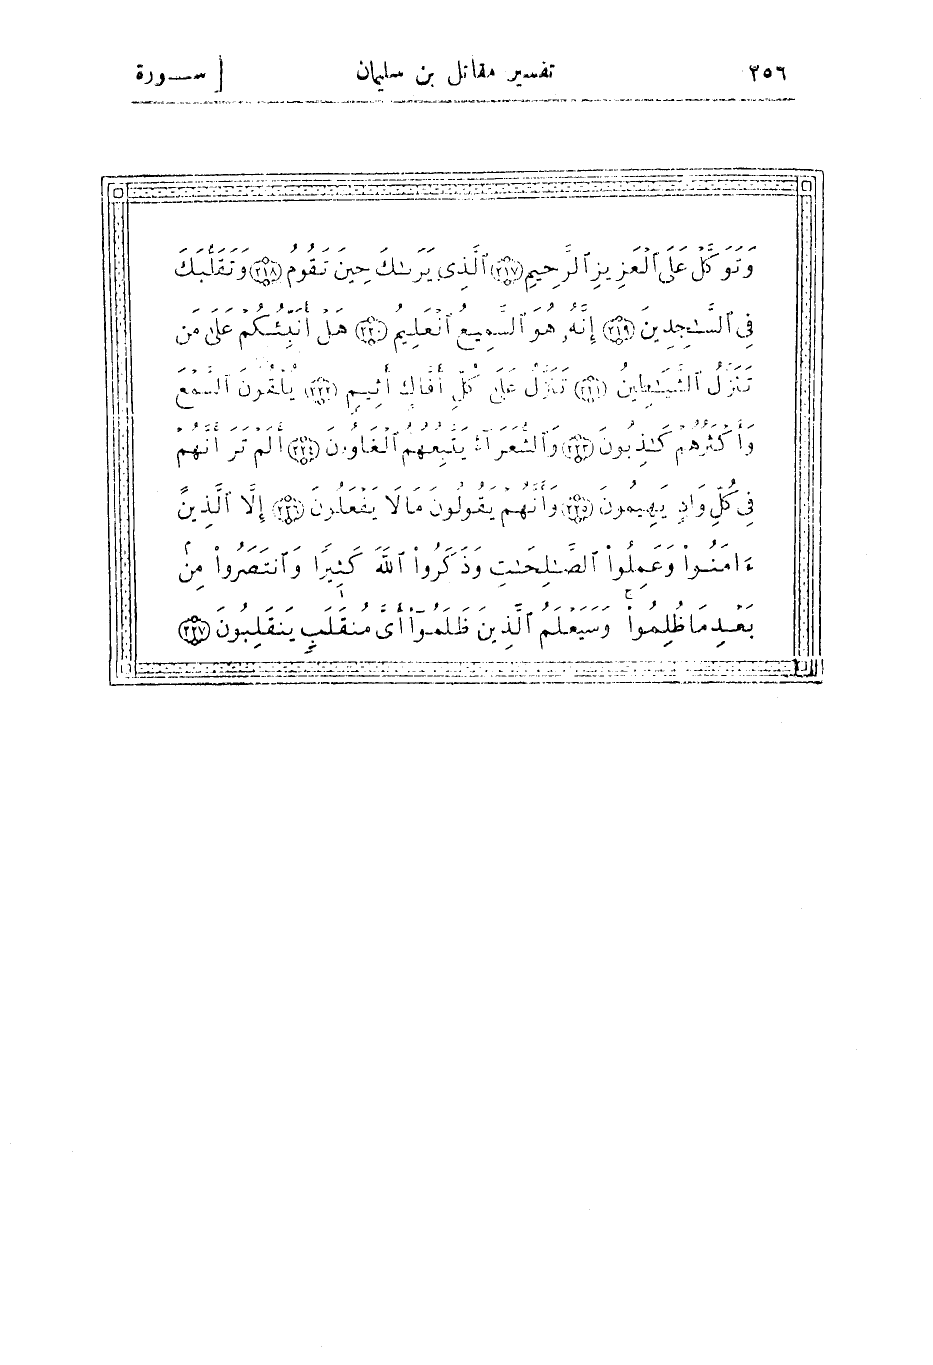 ٢٥٦ تفسير مقاتل بن سليمان [ سـورة
وَتَوَكَّلْ عَلَى ٱلْعَزِيزِ ٱلرَّحِيمِ ﴿٢١٧﴾ ٱلَّذِى يَرَىٰكَ حِينَ تَقُومُ ﴿٢١٨﴾ وَتَقَلُّبَكَ
فِى ٱلسَّٰجِدِينَ ﴿٢١٩﴾ إِنَّهُۥ هُوَ ٱلسَّمِيعُ ٱلْعَلِيمُ ﴿٢٢٠﴾ هَلْ أُنَبِّئُكُمْ عَلَىٰ مَن
تَنَزَّلُ ٱلشَّيَٰطِينُ ﴿٢٢١﴾ تَنَزَّلُ عَلَىٰ كُلِّ أَفَّاكٍ أَثِيمٍ ﴿٢٢٢﴾ يُلْقُونَ ٱلسَّمْعَ
وَأَكْثَرُهُمْ كَٰذِبُونَ ﴿٢٢٣﴾ وَٱلشُّعَرَآءُ يَتَّبِعُهُمُ ٱلْغَاوُۥنَ ﴿٢٢٤﴾ أَلَمْ تَرَ أَنَّهُمْ
فِى كُلِّ وَادٍ يَهِيمُونَ ﴿٢٢٥﴾ وَأَنَّهُمْ يَقُولُونَ مَا لَا يَفْعَلُونَ ﴿٢٢٦﴾ إِلَّا ٱلَّذِينَ
ءَامَنُوا۟ وَعَمِلُوا۟ ٱلصَّٰلِحَٰتِ وَذَكَرُوا۟ ٱللَّهَ كَثِيرًا وَٱنتَصَرُوا۟ مِنۢ
بَعْدِ مَا ظُلِمُوا۟ ۗ وَسَيَعْلَمُ ٱلَّذِينَ ظَلَمُوٓا۟ أَىَّ مُنقَلَبٍ يَنقَلِبُونَ ﴿٢٢٧﴾